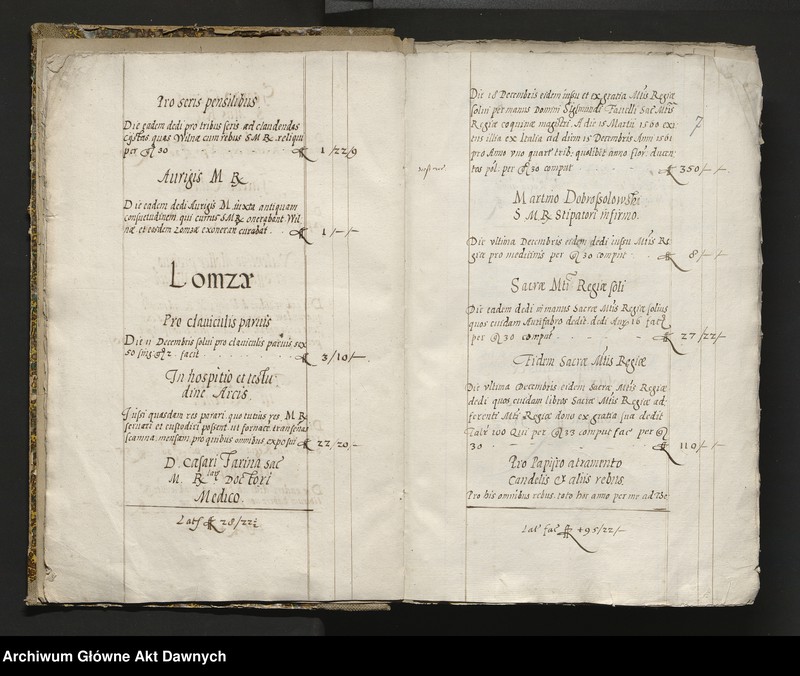 Pro seris pensilibus
Die eadem dedi pro tribus seris ad claudendas
cistas quas Wilnæ cum rebus S M R reliqui
per 30 1/22/9
Aurigis M R
Die eadem dedi Aurigis M iuxta antiquam
consuetudinem qui currus S M R onerabant Wil
næ et eosdem Lomzæ exonerari curabāt. 1/-/-
Lomzæ
Pro clauiculis paruis
Die 11 Decembris solui pro clauiculis paruis sex
50 facit 3/10/-
In hospitio et testu
dine Arcis.
Iussi quasdam res parari quo tutius res M R
seruari et custodiri possent ut fornacē transenas
scamna mensam pro quibus omnibus exposui 22/20/-
D. Cæsari Farina Sac
M. R. Doctori
Medico.
Lats 28/22½
7
Die 18 Decembris eidem iussu et ex gratia Mtis Regiæ
solui per manus Domini Sigismundi Fanelli Sac Mtis
Regiæ coquinæ magistri. A die 15 Martii 1560 exi
tus illius ex Italia ad diem 15 Decembris Anni 1561
pro Anno vno quart trib: quolibet anno flor: ducen
tos pol: per 30 comput 350/-/-
Martino Dobrossolowski
S M R Stipatori infirmo.
Die vltima Decembris eidem dedi iussu Mtis Re
giæ pro medicinis per 30 comput 8/-/-
Sacræ Mti Regiæ soli
Die eadem dedi in manus Sacræ Mtis Regiæ solius
quos cuidam Aurifabro dedit dedi 16 fact
per 30 comput 27/22/-
Eidem Sacræ Mtis Regiæ
Die vltima Decembris eidem Sacræ Mtis Regiæ
dedi quos cuidam libros Sacræ Mtis Regiæ ad
ferenti Mtas Regiæ dono ex gratia sua dedit
Talr 100 Qui per 33 comput fac per
30 110/-/-
Pro Papiro atramento
Candelis & aliis rebus.
Pro his omnibus rebus toto hoc anno per me
Lat fac 495/22/-
Archiwum Główne Akt Dawnych